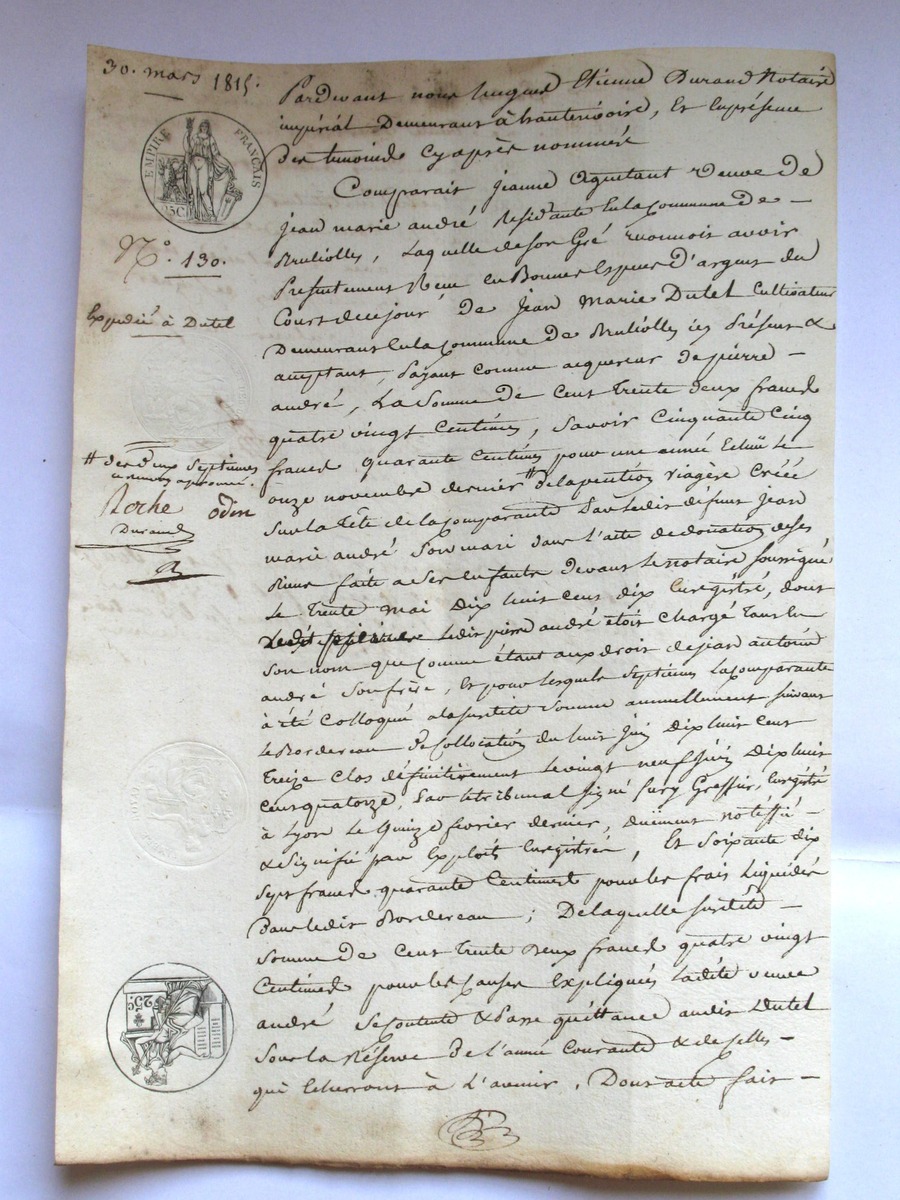 30. mars 1815.
EMPIRE FRANÇAIS
25C
N.o 130.
Expédié à Dutel
# des deux Septiemes
Roche odin
Durand
Pardevant nous hugues Etienne Durand Notaire
impérial Demeurant à hauterivoire, Et En présence
des temoins Cyaprès nommés
Comparait jeanne Aguitant veuve de
jean marie andré Residante En la Commune de –
Brulliolles, Laquelle de son Gré reconnoit avoir
Présentement Reçu en Bonnes Especes d'argent du
Cours de ce jour de Jean Marie Dutel Cultivateur
Demeurant En la Commune de Brulliolles ici Présent &
acceptant, Payant Comme acquereur de pierre –
andré, La Somme de Cent Trente deux francs
quatre vingt Centimes, Savoir Cinquante Cinq
francs quarante Centimes pour une année Echüe Le
onze novembre dernier # de la pention viagère Créée
Sur la Tête de la Comparante Par Ledit défunt Jean
marie andré Son mari dans l'acte de donation de ses
Biens faite a Ses Enfants Devant Le notaire Soussigné
Le Trente Mai Dix huit cent dix Enregistré, dont
Ledit pierre andré étoit Chargé Tant En
Son nom que Comme étant aux droit de jean antoine
andré Son frère, Et pour Lesquels Septiemes La Comparante
à été Colloqué a la susdite Somme annuellement suivant
Le Bordereau de Collocation du huit Juin Dix huit Cent
Treize Clos définitivement Le vingt neuf Juin Dix huit
Cent quatorze, Par Le tribunal Signé fury Greffier, Enregistré
à Lyon Le Quinze fevrier dernier, duëment notiffié –
& Signifié par Exploit Enregistrés, Et Soixante dix
Sept francs quarante Centimes pour les frais Liquidés
Dans Ledit Bordereau ; De laquelle susdite –
Somme de Cent Trente Deux francs quatre vingt
Centimes pour les Causes Expliquées Ladite veuve
andré Se Contente & Passe quittance audit Dutel
Sous La Réserve De l'année Courante & de Celles –
qui Echerront à L'avenir. Dont acte fait –
25C